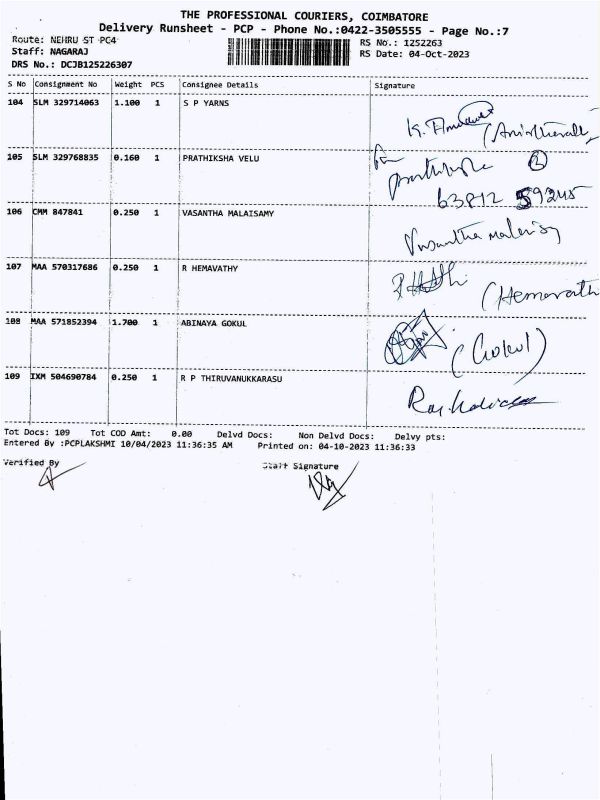 THE PROFESSIONAL COURIERS, COIMBATORE
Delivery Runsheet - PCP - Phone No.:0422-3505555 - Page No.:7
Route: NEHRU ST PC4 RS No.: 1252263
Staff: NAGARAJ RS Date: 04-Oct-2023
DRS No.: DCJB125226307
S No Consignment No Weight PCS Consignee Details Signature
104 SLM 329714063 1.100 1 S P YARNS
105 SLM 329768835 0.160 1 PRATHIKSHA VELU
63812 59245
106 CMM 847841 0.250 1 VASANTHA MALAISAMY
Vasantha malaisy
107 MAA 570317686 0.250 1 R HEMAVATHY
(Hemavath
108 MAA 571852394 1.700 1 ABINAYA GOKUL
(Gokul)
109 IXM 504690784 0.250 1 R P THIRUVANUKKARASU
Tot Docs: 109 Tot COD Amt: 0.00 Delvd Docs: Non Delvd Docs: Delvy pts:
Entered By :PCPLAKSHMI 10/04/2023 11:36:35 AM Printed on: 04-10-2023 11:36:33
Verified By Staff Signature